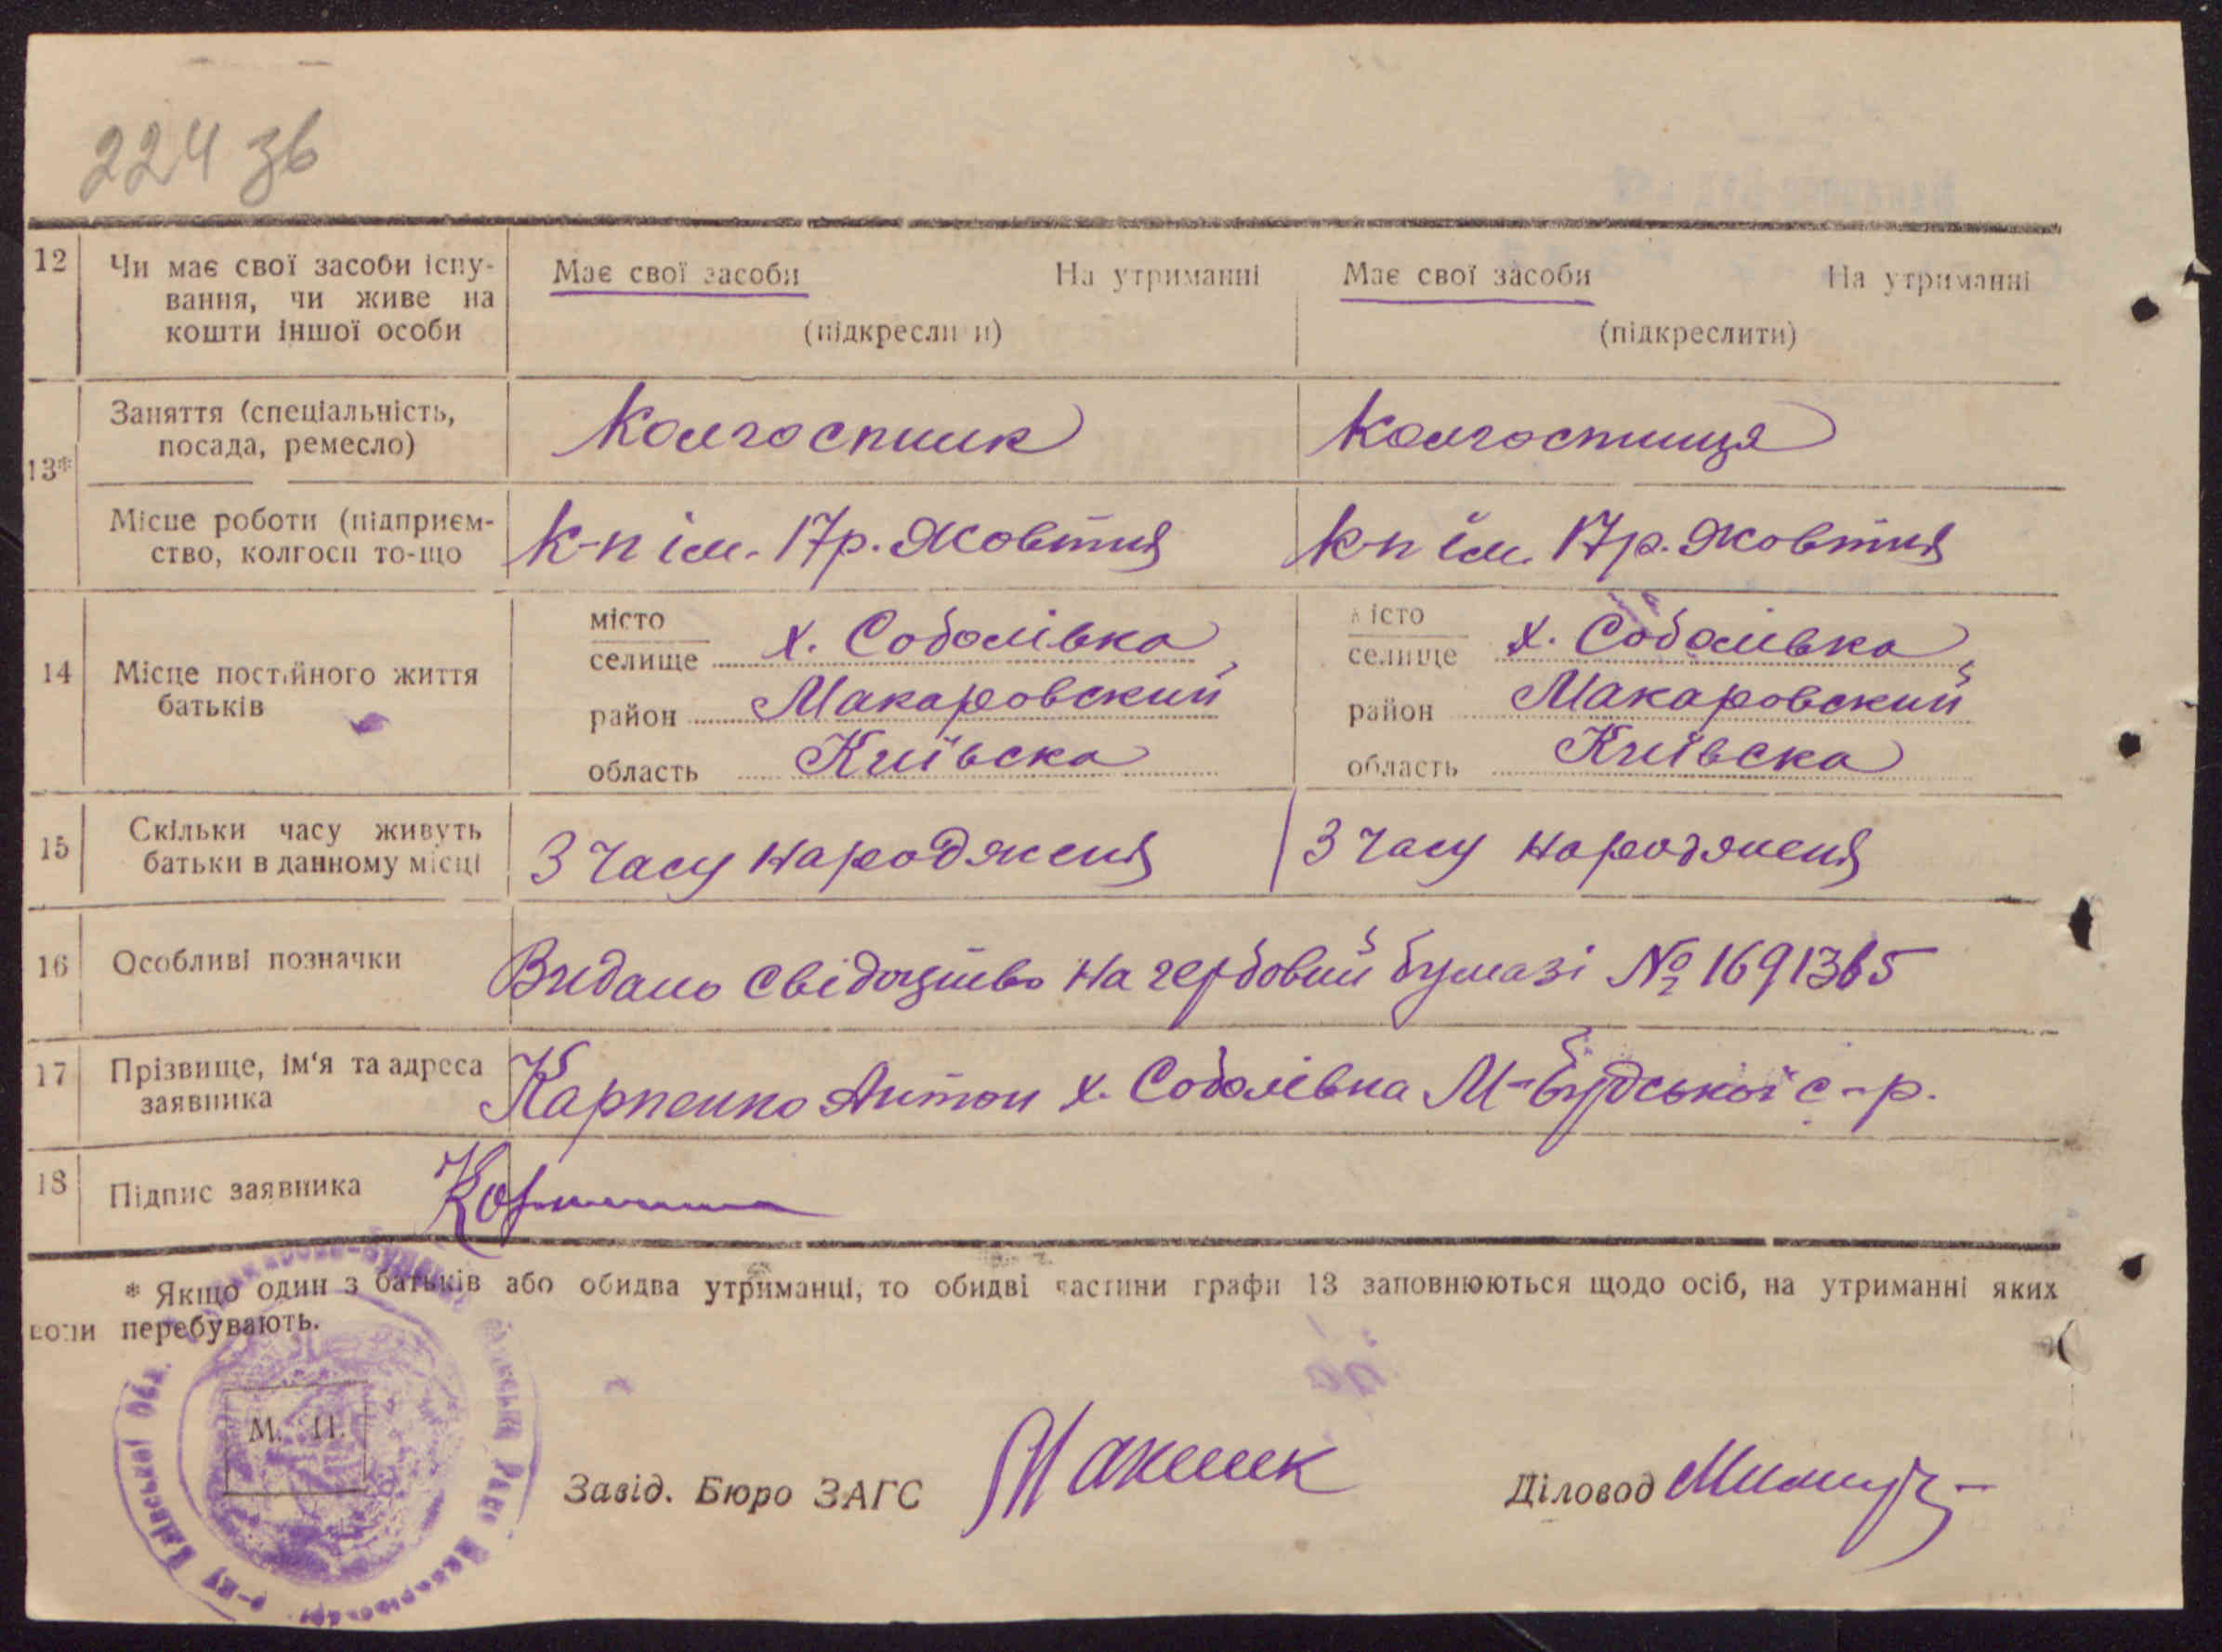 224 зв
12 Чи має свої засоби існу-
вання, чи живе на
кошти іншої особи
Має свої засоби На утриманні
(підкресли и)
Має свої засоби На утриманні
(підкреслити)
13*
Заняття (спеціальність,
посада, ремесло)
Колгоспник
Колгоспниця
Місце роботи (підприєм-
ство, колгосп то-що
к-п ім. 17р. Жовтня
к-п ім. 17р. Жовтня
14 Місце постійного життя
батьків
місто
селище х. Соболівка
район Макаровский
область Київска
місто
селище х. Соболівка
район Макаровский
область Київска
15 Скільки часу живуть
батьки в данному місці
З часу народженя
З часу народженя
16 Особливі позначки
Видано свідоцтво на гербовий бумазі № 1691365
17 Прізвище, ім'я та адреса
заявника
Карпенко Антон х. Соболівка М-Будської с-р.
18 Підпис заявника
* Якщо один з батьків або обидва утриманці, то обидві частини графи 13 заповнюються щодо осіб, на утриманні яких
вони перебувають.
М. П.
Завід. Бюро ЗАГС
Діловод